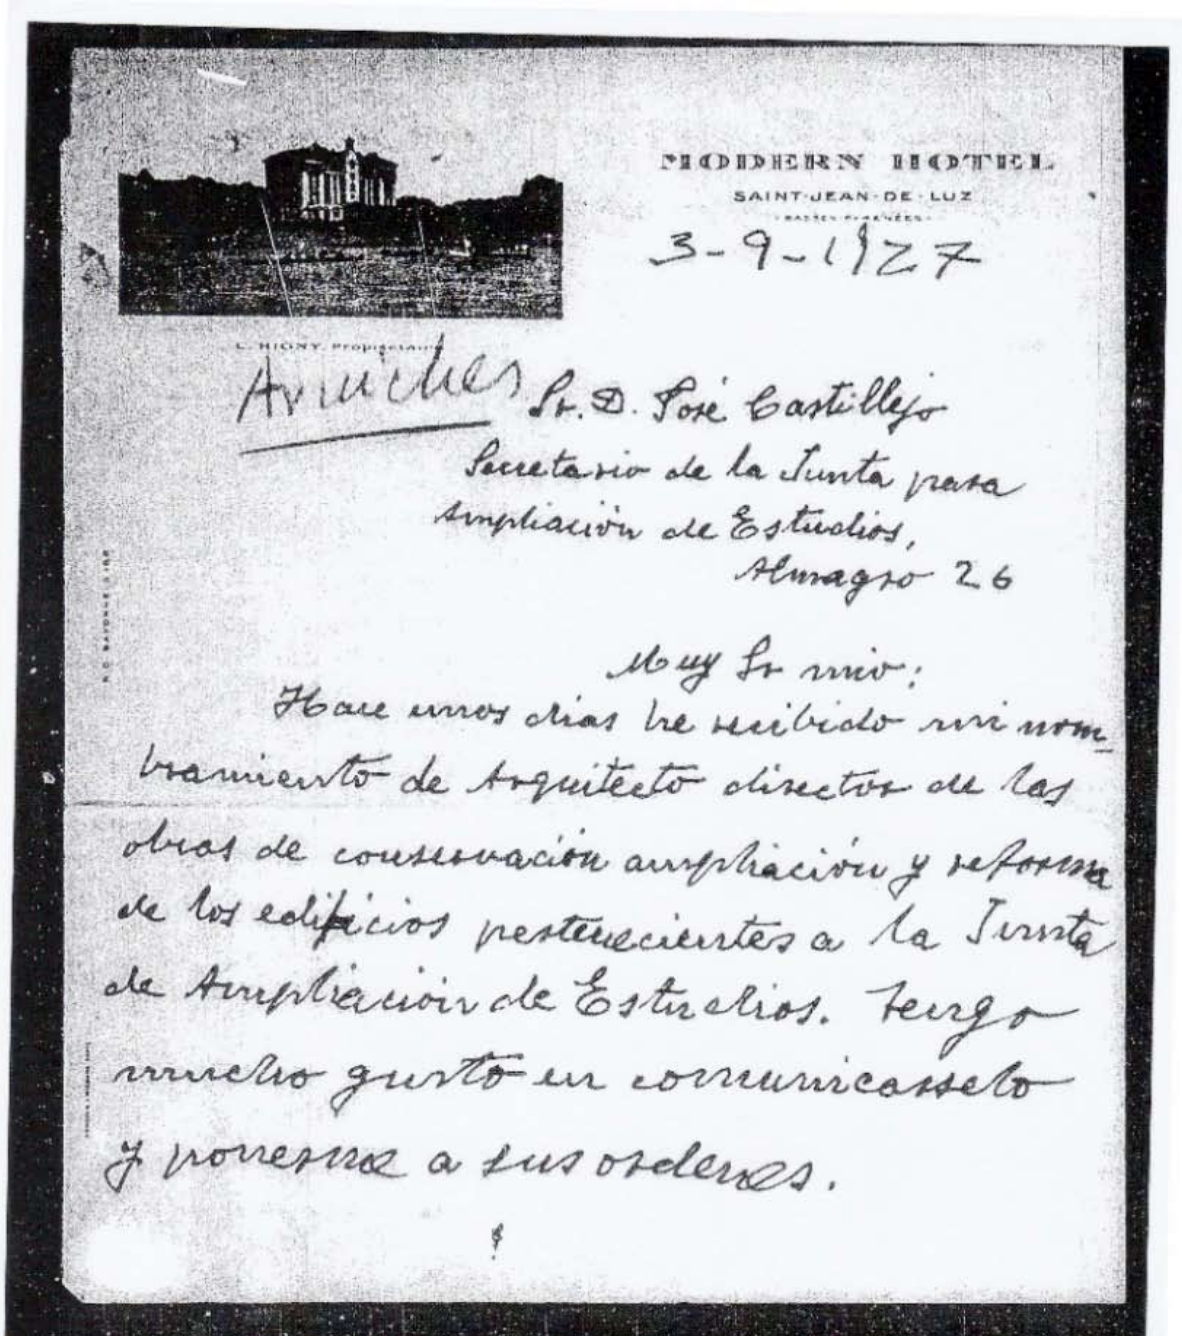 MODERN HOTEL
SAINT-JEAN-DE-LUZ
BASSES-PYRÉNÉES
3-9-1927
Propriétaire
Arniches
Sr. D. José Castillejo
Secretario de la Junta para
Ampliación de Estudios,
Almagro 26
Muy Sr mio:
Hace unos dias he recibido mi nom-
bramiento de Arquitecto director de las
obras de conservación ampliación y reforma
de los edificios pertenecientes a la Junta
de Ampliación de Estudios. Tengo
mucho gusto en comunicarselo
y ponerme a sus ordenes.